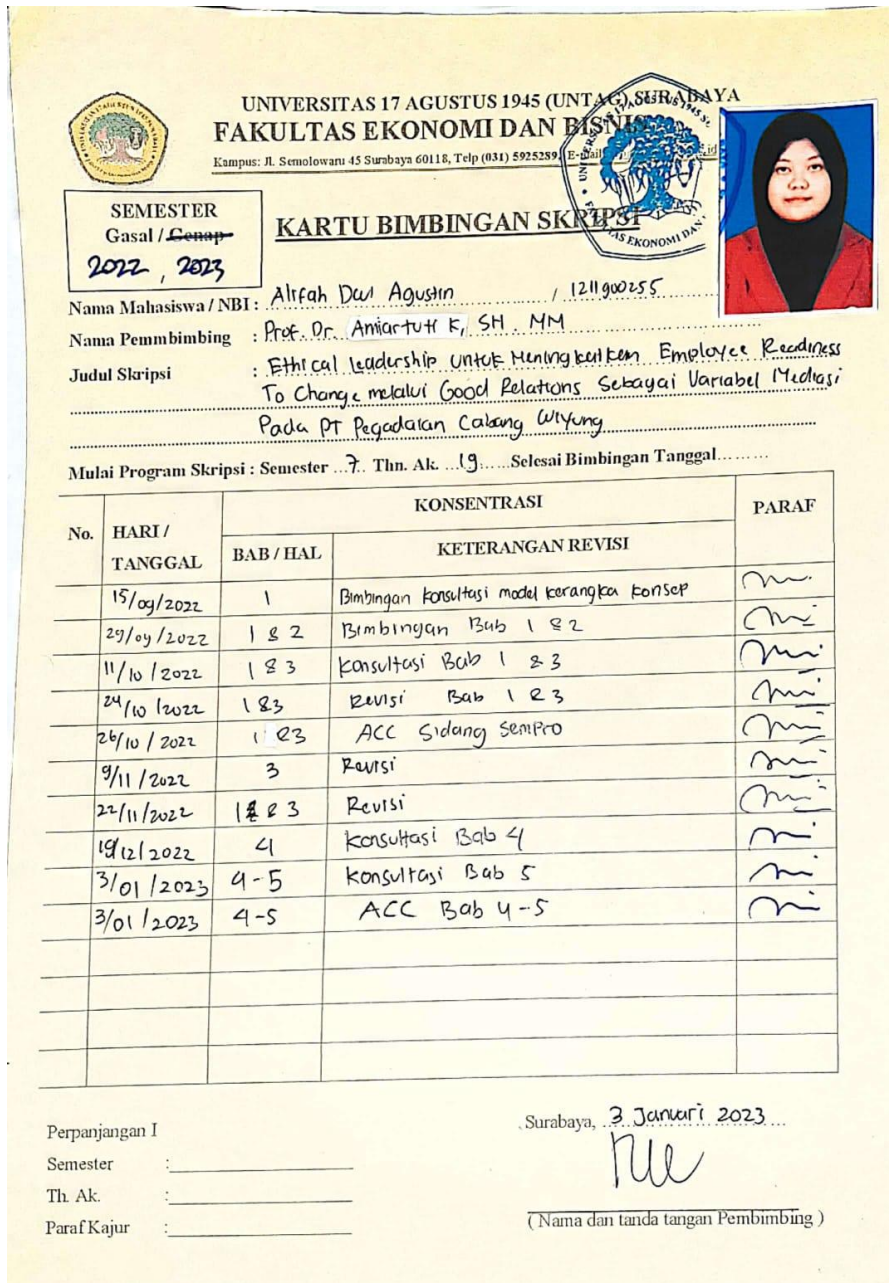 UNIVERSITAS 17 AGUSTUS 1945 (UNTAG) SURABAYA
FAKULTAS EKONOMI DAN BISNIS
Kampus: Jl. Semolowaru 45 Surabaya 60118, Telp (031) 5925289,
SEMESTER
Gasal / Genap
2022, 2023
KARTU BIMBINGAN SKRIPSI
Nama Mahasiswa / NBI : Alifah Dwi Agustin / 1211900255
Nama Pemmbimbing : Prof. Dr. Amiartuti K, SH. MM
Judul Skripsi : Ethical Leadership untuk Meningkatkan Employee Readiness
To Change melalui Good Relations Sebagai Variabel Mediasi
Pada PT Pegadaian Cabang Wiyung
Mulai Program Skripsi : Semester ...7.. Thn. Ak. ...19......Selesai Bimbingan Tanggal.........
No. HARI / TANGGAL KONSENTRASI PARAF
BAB / HAL KETERANGAN REVISI
15/09/2022 1 Bimbingan konsultasi model kerangka konsep
29/09/2022 1 & 2 Bimbingan Bab 1 & 2
11/10/2022 1 & 3 Konsultasi Bab 1 & 3
24/10/2022 1 & 3 Revisi Bab 1 & 3
26/10/2022 1 &3 ACC Sidang Sempro
9/11/2022 3 Revisi
22/11/2022 1 & 3 Revisi
19/12/2022 4 Konsultasi Bab 4
3/01/2023 4-5 Konsultasi Bab 5
3/01/2023 4-5 ACC Bab 4-5
Surabaya, 3 Januari 2023
Perpanjangan I
Semester :
Th. Ak. :
Paraf Kajur :
( Nama dan tanda tangan Pembimbing )